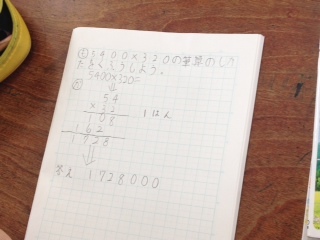 ① 5400×320の筆算のしか
たをくふうしよう。
5400×320=
⇓
②
54
×32
1ぱん
108
162
1728
⇓
答え 1728000